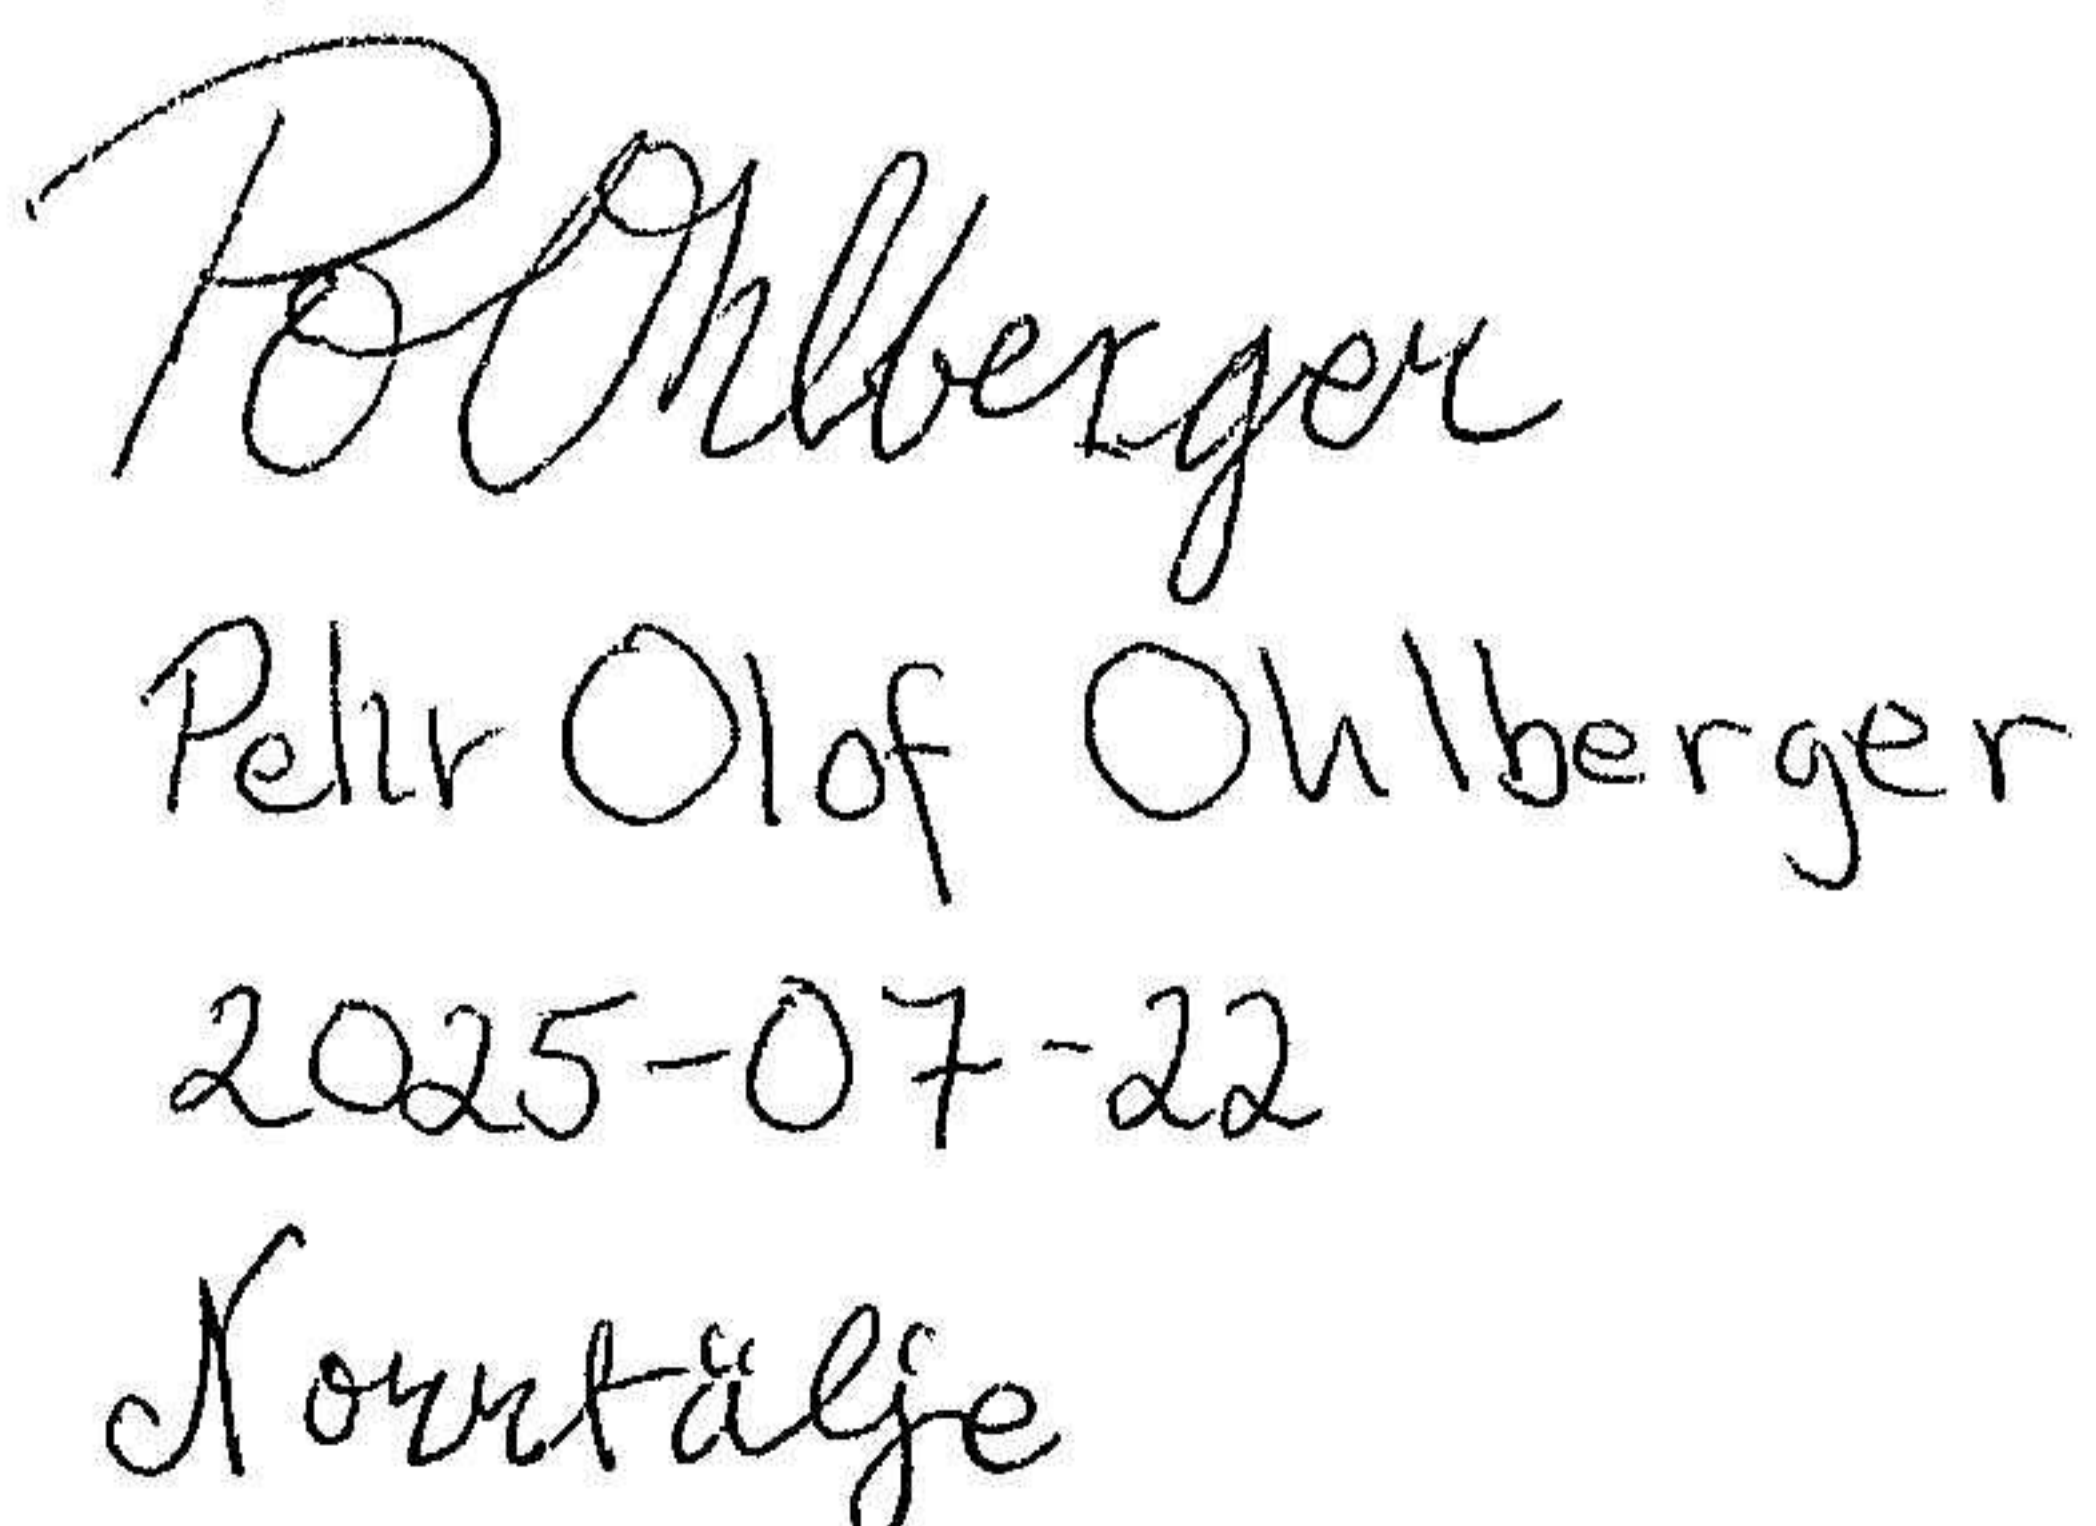 PO Ohlberger
Pehr Olof Ohlberger
2025-07-22
Norrtälje